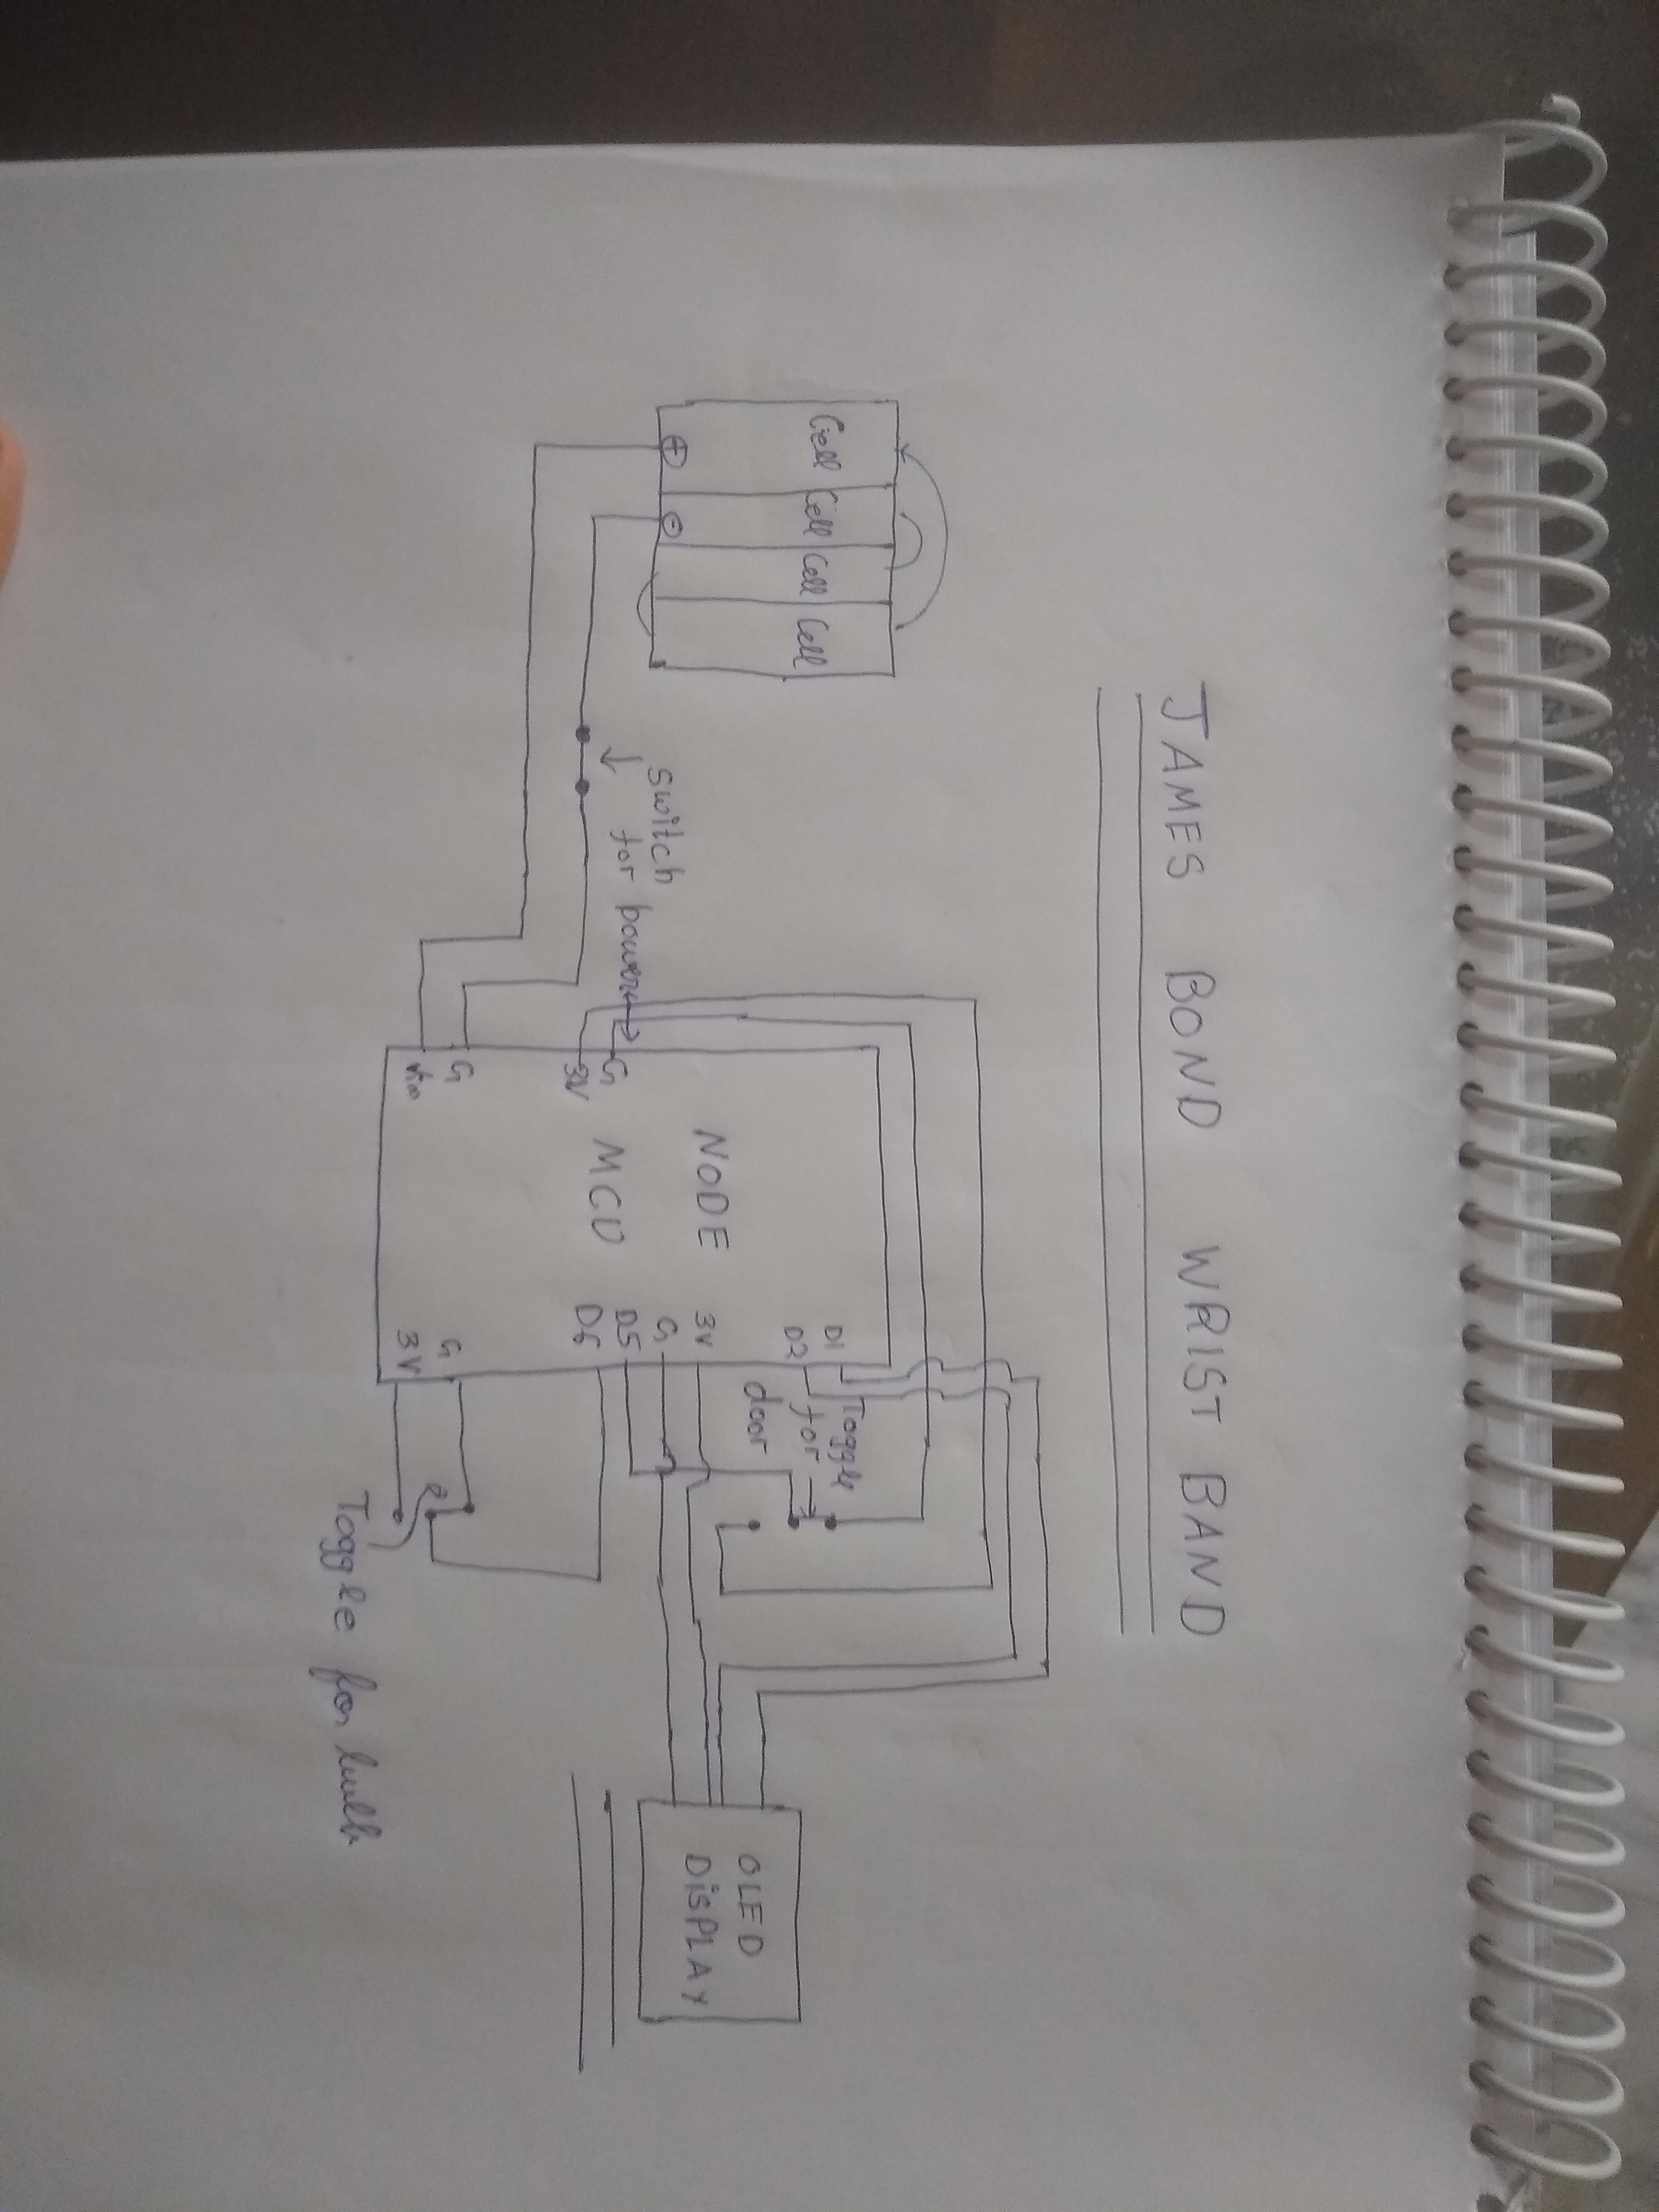 JAMES BOND WRIST BAND
Cell Cell Cell Cell
+ -
Switch
for power
G
3V
G
Vin
NODE
MCU
D1
D2
3V
G
D5
D6
G
3V
Toggle
for
door
Toggle for bulb
OLED
DISPLAY